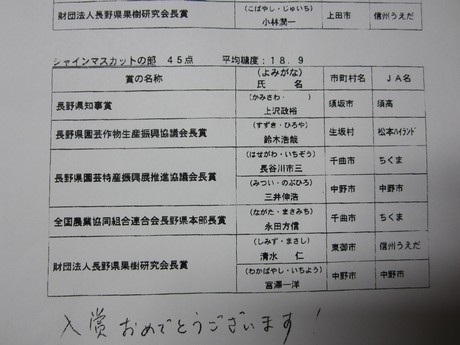 (こばやし・じゅいち)
財団法人長野県果樹研究会長賞 小林潤一 上田市 信州うえだ
シャインマスカットの部 45点 平均糖度:18.9
賞の名称 (よみがな) 氏 名 市町村名 JA名
(かみさわ・ )
長野県知事賞 上沢政裕 須坂市 須高
(すずき・ひろや)
長野県園芸作物生産振興協議会長賞 鈴木浩哉 生坂村 松本ハイランド
(はせがわ・いちぞう)
長谷川市三 千曲市 ちくま
長野県園芸特産振興展推進協議会長賞
(みつい・のぶひろ)
三井伸浩 中野市 中野市
(ながた・まさみち)
全国農業協同組合連合会長野県本部長賞 永田方信 千曲市 ちくま
(しみず・まさし)
清水 仁 東御市 信州うえだ
財団法人長野県果樹研究会長賞
(わかばやし・いちよう)
冨澤一洋 中野市 中野市
入賞おめでとうございます!